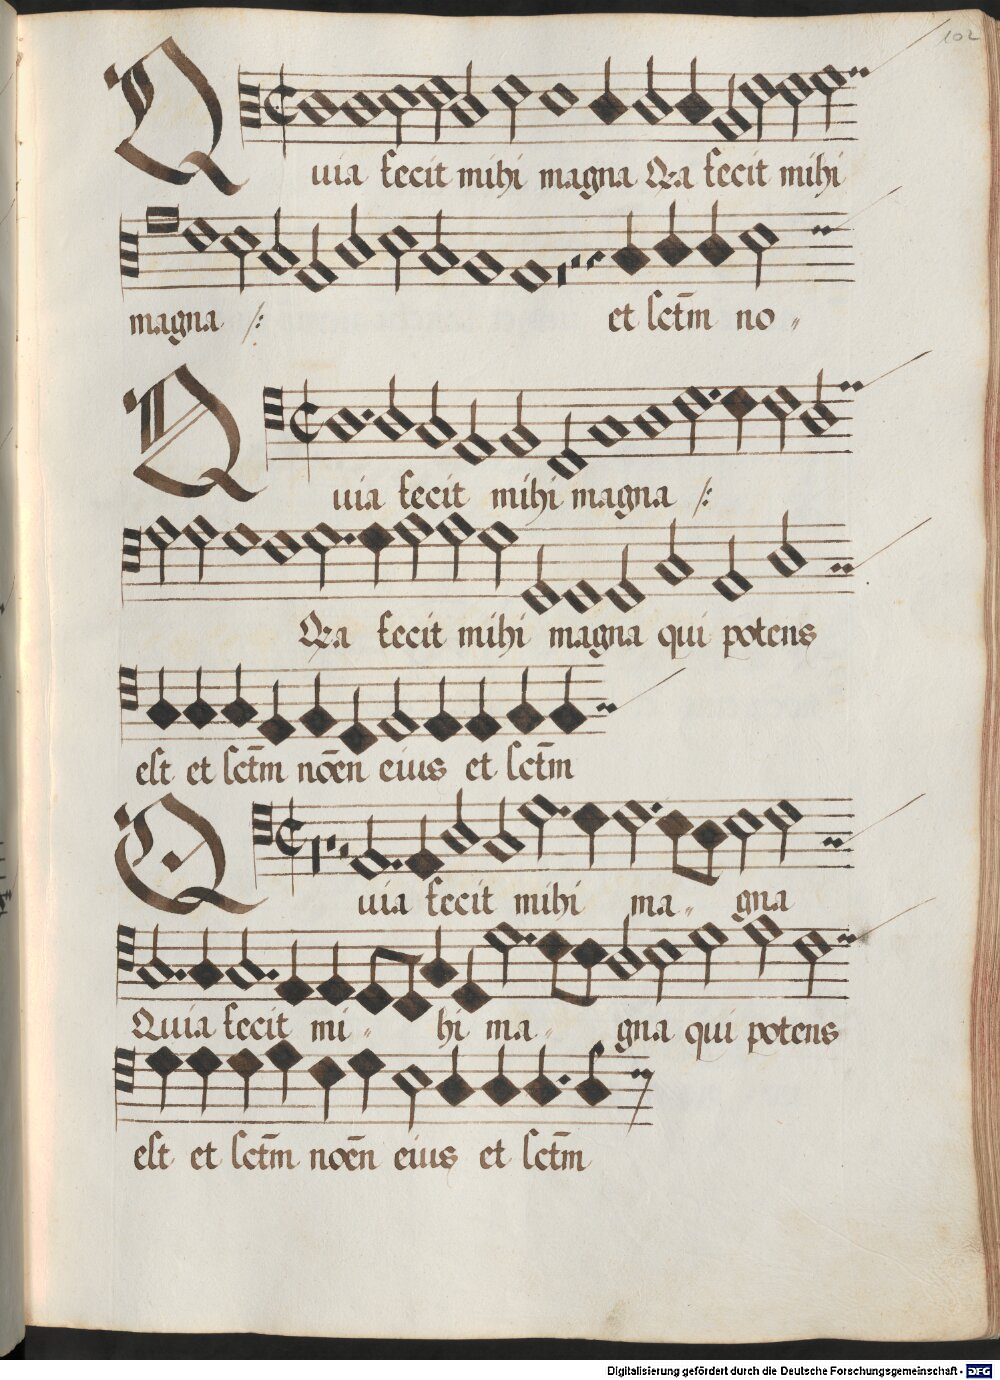 102
Quia fecit mihi magna Qza fecit mihi
magna /: et sct̄m no„
Quia fecit mihi magna /:
Qza fecit mihi magna qui potens
est et sct̄m nōen eius et sct̄m
Quia fecit mihi ma„ gna
Quia fecit mi„ hi ma„ gna qui potens
est et sct̄m nōen eius et sct̄m
Digitalisierung gefördert durch die Deutsche Forschungsgemeinschaft - DFG